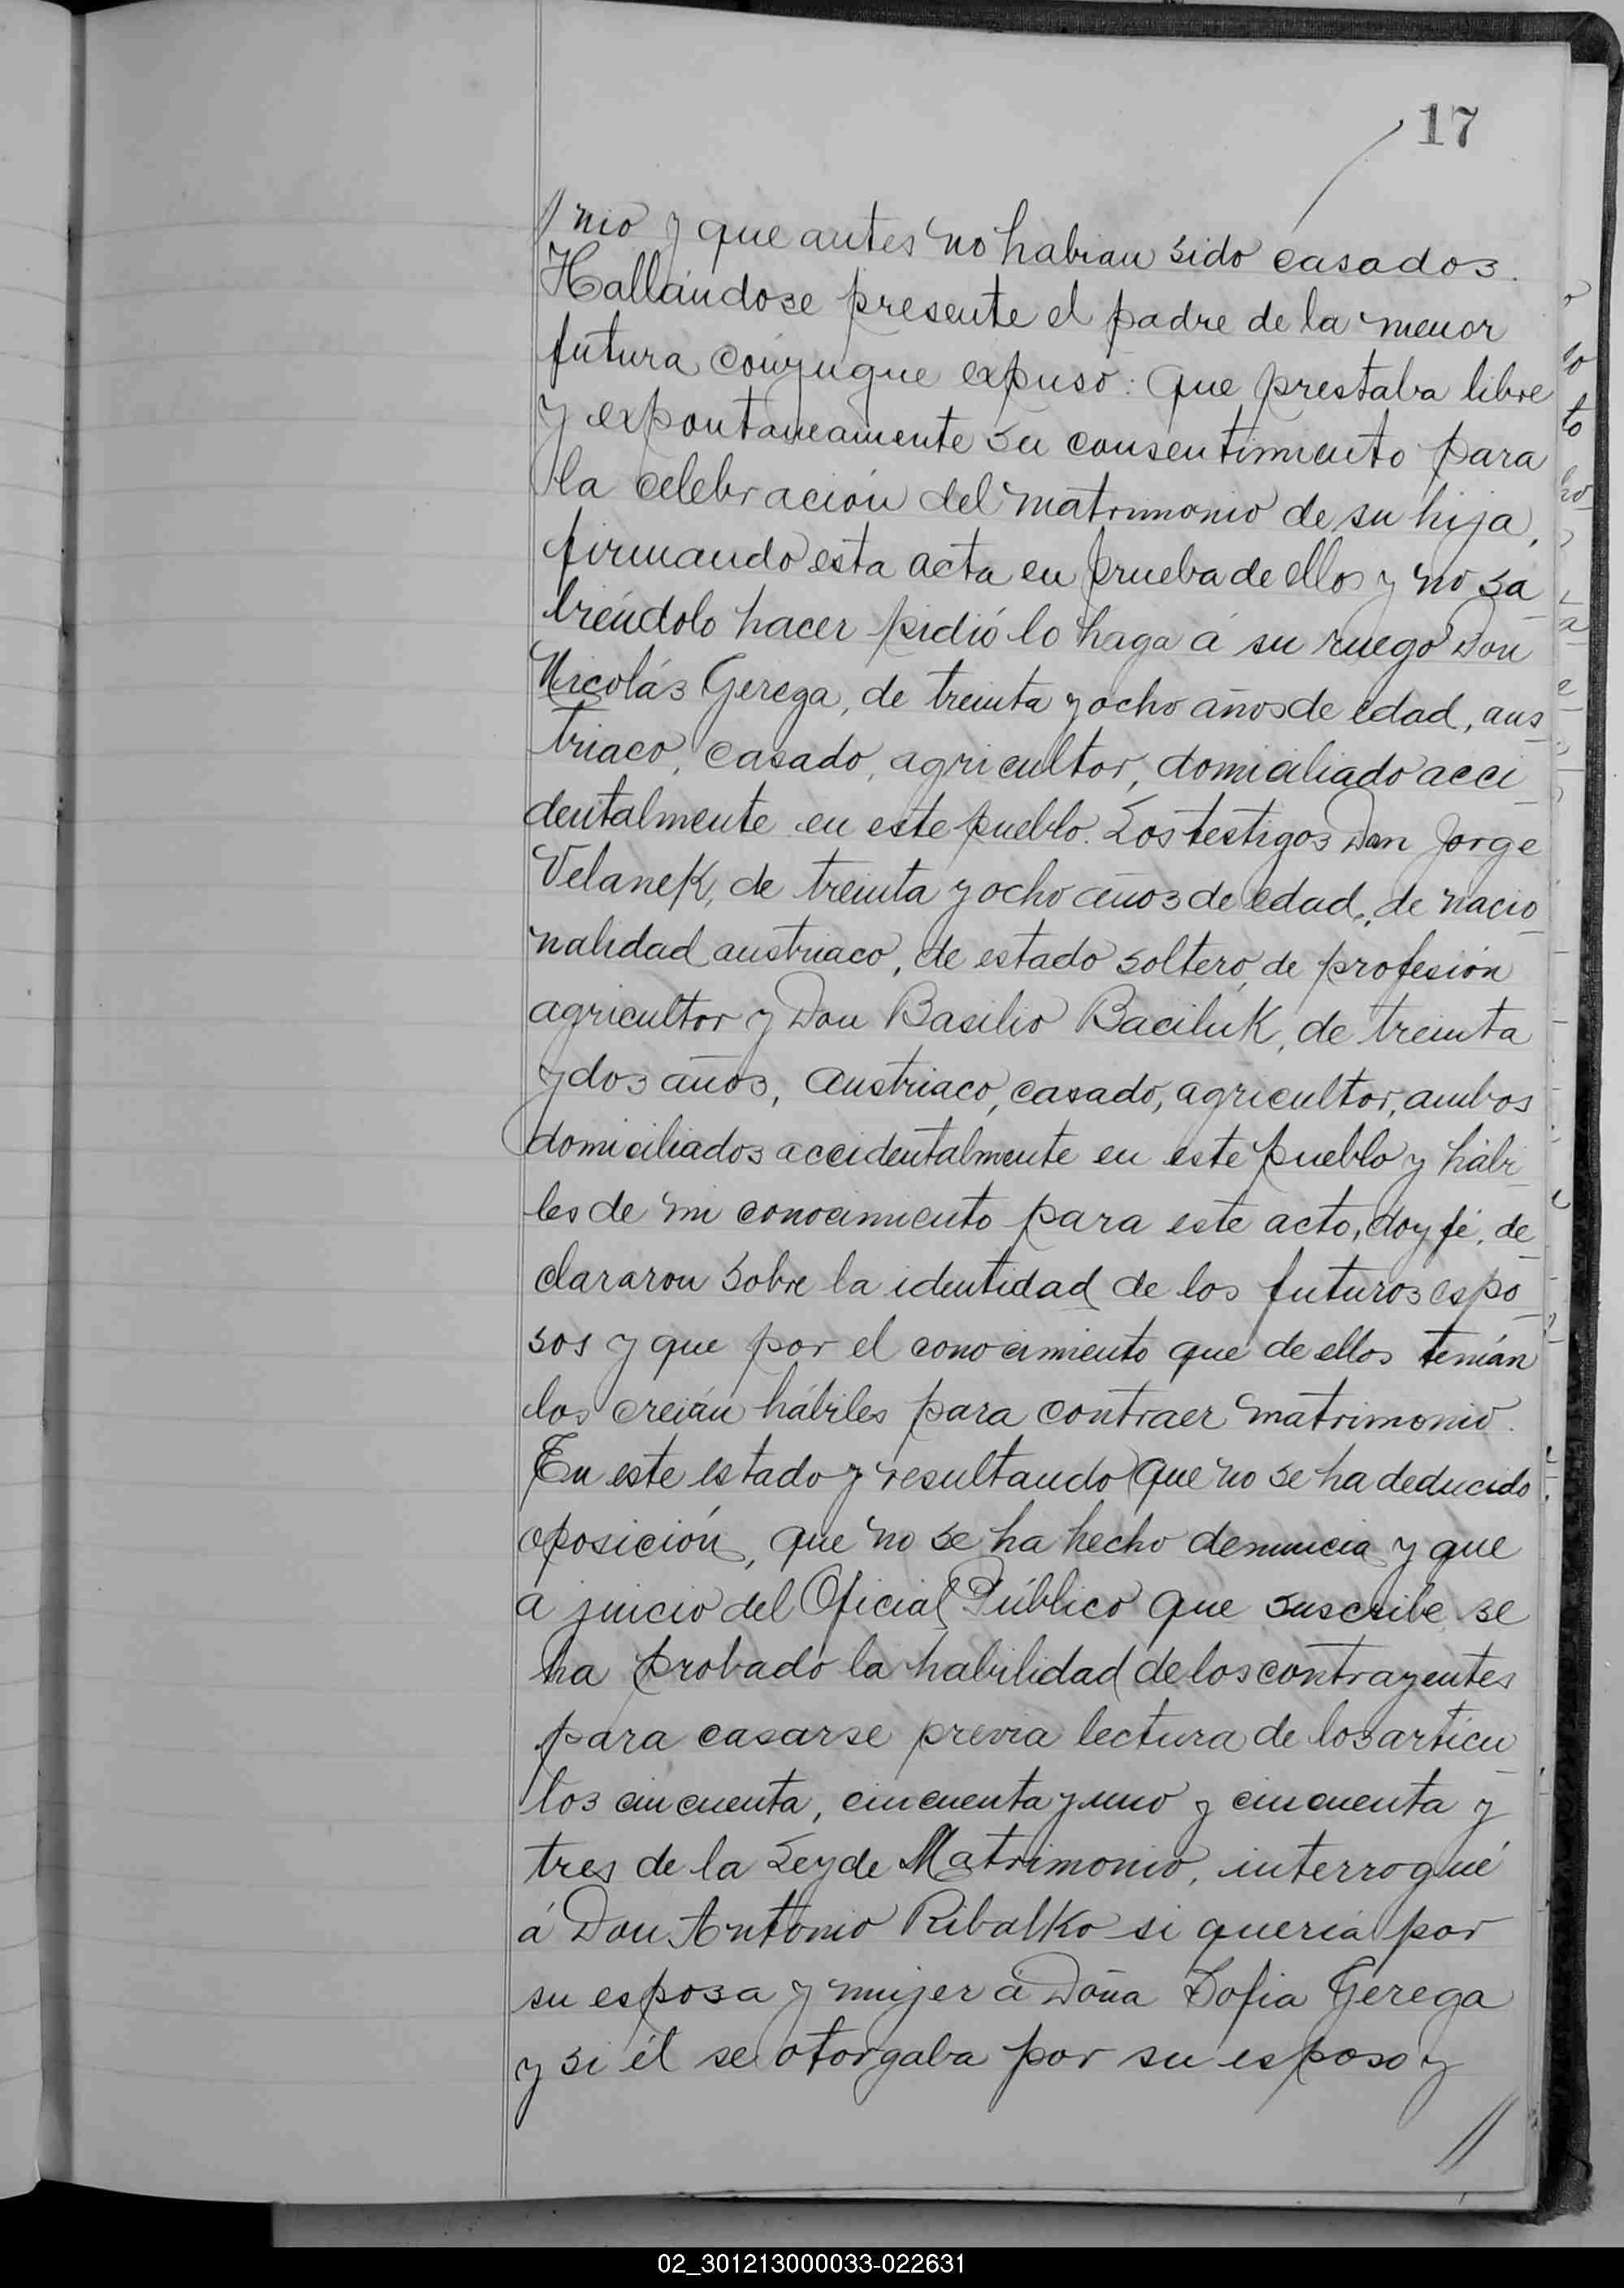 17
// nio y que antes no habian sido casados.
Hallándose presente el padre de la menor
futura conyugue expuso: que prestaba libre
y expontaneamente su consentimiento para
la celebración del matrimonio de su hija,
firmando esta acta en prueba de ellos y no sa
biéndolo hacer pidió lo haga á su ruego Don
Nicolás Gerega, de treinta y ocho años de edad, aus
triaco, casado, agricultor, domiciliado acci
dentalmente en este pueblo. Los testigos Don Jorge
Velanek, de treinta y ocho años de edad, de nacio
nalidad austriaco, de estado soltero, de profesión
agricultor y Don Basilio Baciluk, de treinta
y dos años, austriaco, casado, agricultor, ambos
domiciliados accidentalmente en este pueblo y hábi
les de mi conocimiento para este acto, doy fé, de
clararon sobre la identidad de los futuros espo
sos y que por el conocimiento que de ellos tenián
los creián hábiles para contraer matrimonio.
En este estado y resultando que no se ha deducido
oposición, que no se ha hecho denuncia y que
a juicio del Oficial Público que suscribe se
ha probado la habilidad de los contrayentes
para casarse previa lectura de los articu
los cincuenta, cincuenta y uno y cincuenta y
tres de la Ley de Matrimonio, interrogué
á Don Antonio Ribalko si queria por
su esposa y mujer á Doña Sofia Gerega
y si él se otorgaba por su esposo y
//
02_301213000033-022631